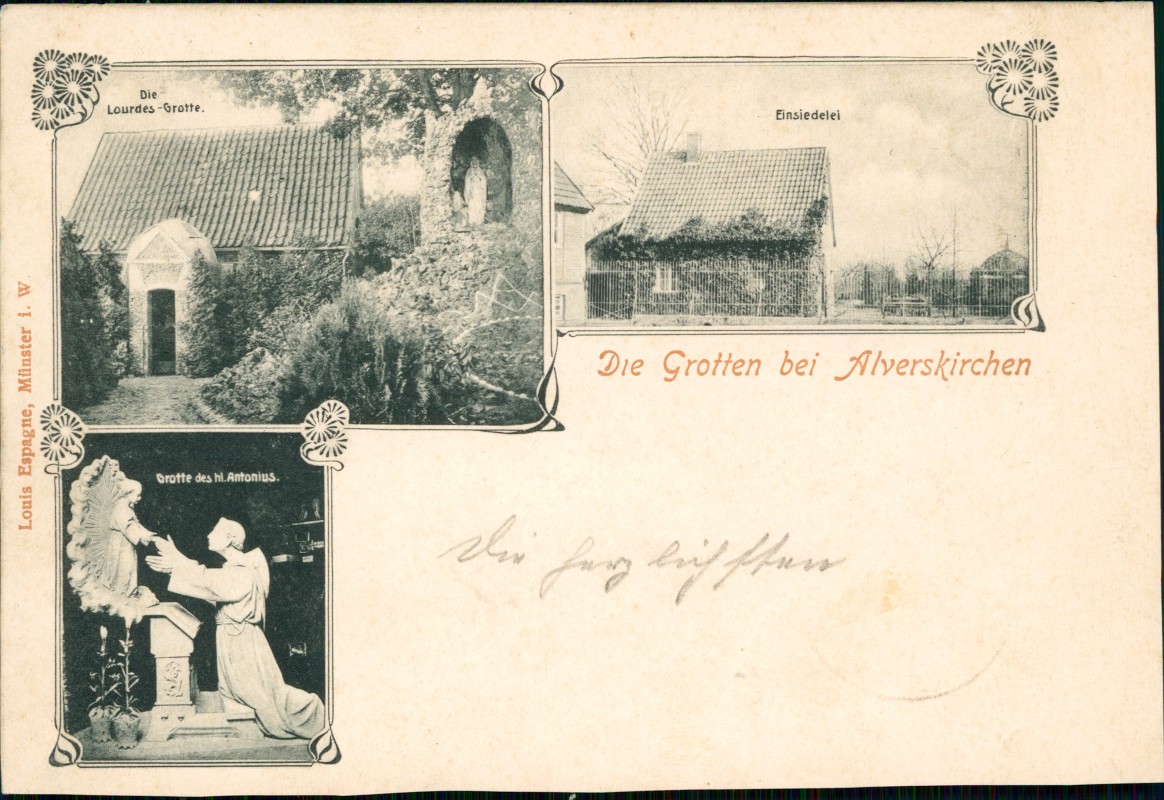 Die
Lourdes-Grotte.
Einsiedelei
Die Grotten bei Alverskirchen
Grotte des hl. Antonius.
Die herzlichsten
Louis Espagne, Münster i. W